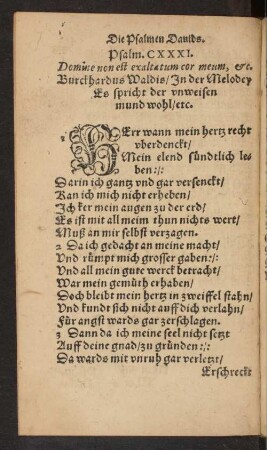 Die Psalmen Dauids.
Psalm. CXXXI.
Domine non est exaltatum cor meum, &c.
Burckhardus Waldis/ In der Melodey
Es spricht der vnweisen
mund wohl/etc.
HErr wann mein hertz recht
vberdenckt/
Mein elend sündtlich le-
ben:/:
Darin ich gantz vnd gar versenckt/
Kan ich mich nicht erheben/
Ich ker mein augen zu der erd/
Es ist mit all meim thun nichts wert/
Muß an mir selbst verzagen.
2 Da ich gedacht an meine macht/
Vnd rümpt mich grosser gaben:/:
Vnd all mein gute werck betracht/
War mein gemüth erhaben/
Doch bleibt mein hertz in zweiffel stahn/
Vnd kundt sich nicht auff dich verlahn/
Für angst wards gar zerschlagen.
3 Dann da ich meine seel nicht setzt
Auff deine gnad/zu gründen:/:
Da wards mit vnruh gar verletzt/
Erschreckt